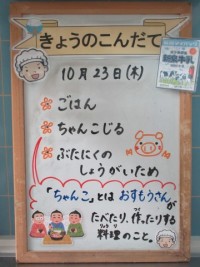 きょうのこんだて
10月23日(木)
ごはん
ちゃんこじる
ぶたにくの
しょうがいため
「ちゃんこ」とは おすもうさんが
たべたり、作ったりする
料理のこと。
りょうり